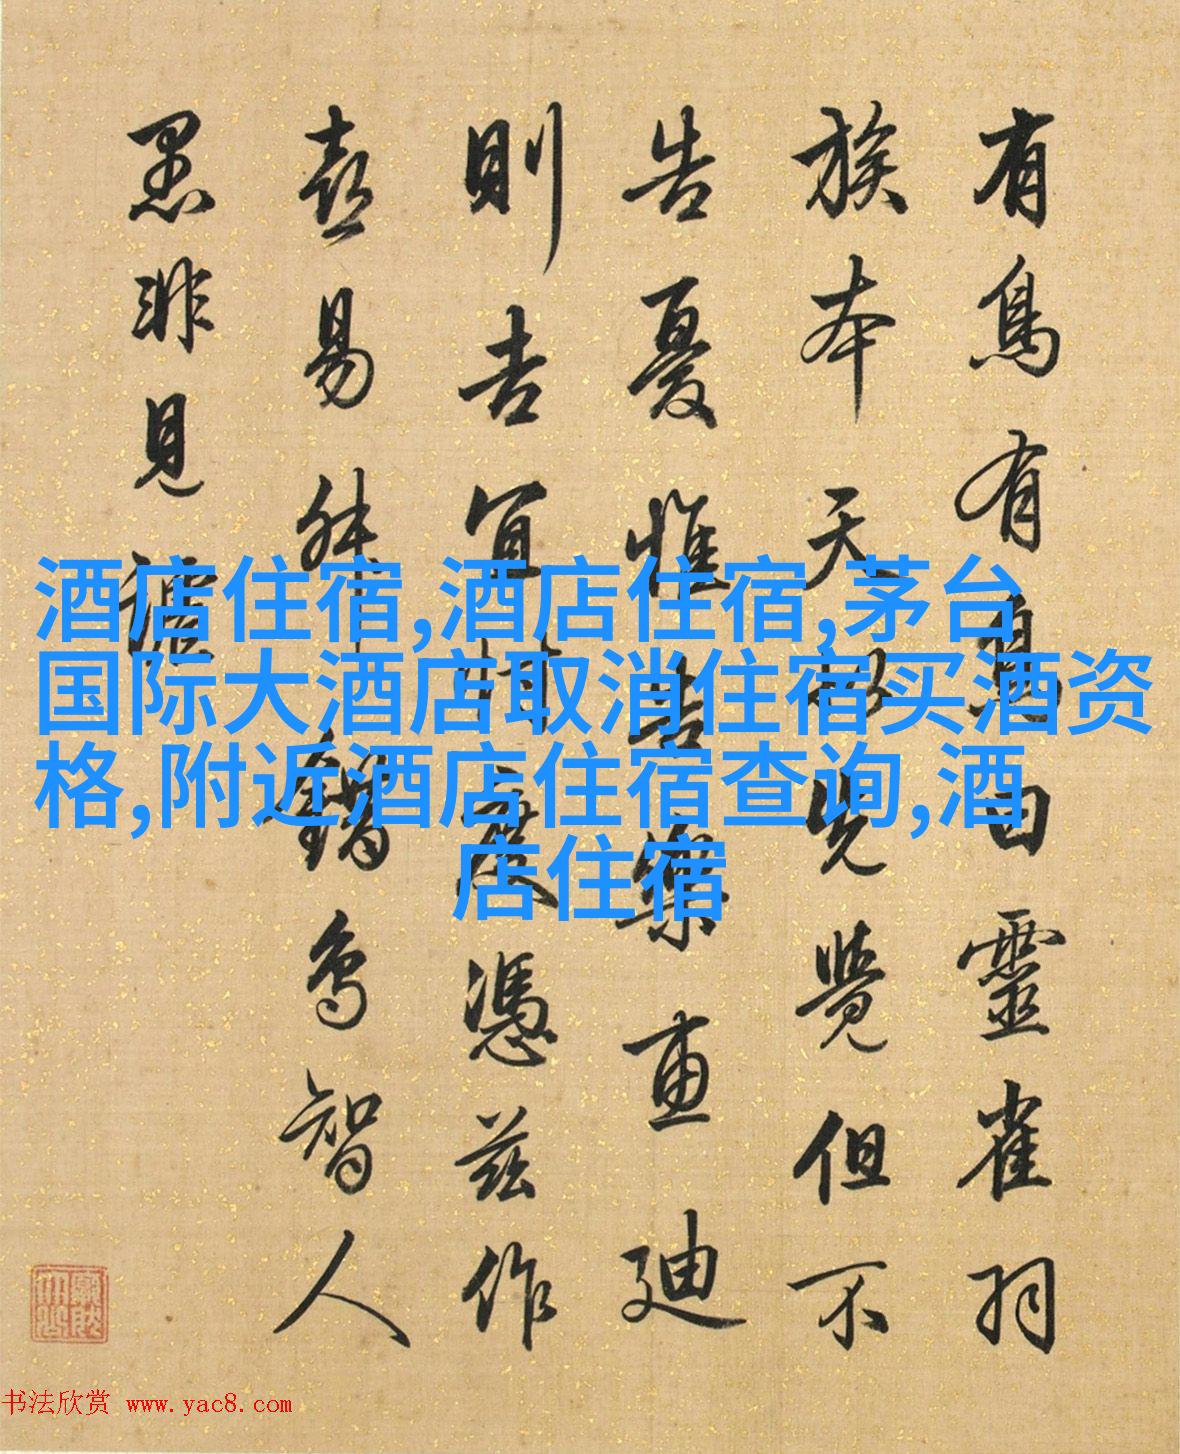 有鳥有鳥曰靈雀羽
族本天先覺但不
告憂惟告樂惠迪
則吉宜情度憑茲作
喜易解鳥智人
愚非見
酒店住宿,酒店住宿,茅台
国际大酒店取消住宿买酒资
格,附近酒店住宿查询,酒
店住宿
书法欣赏 www.yac8.com